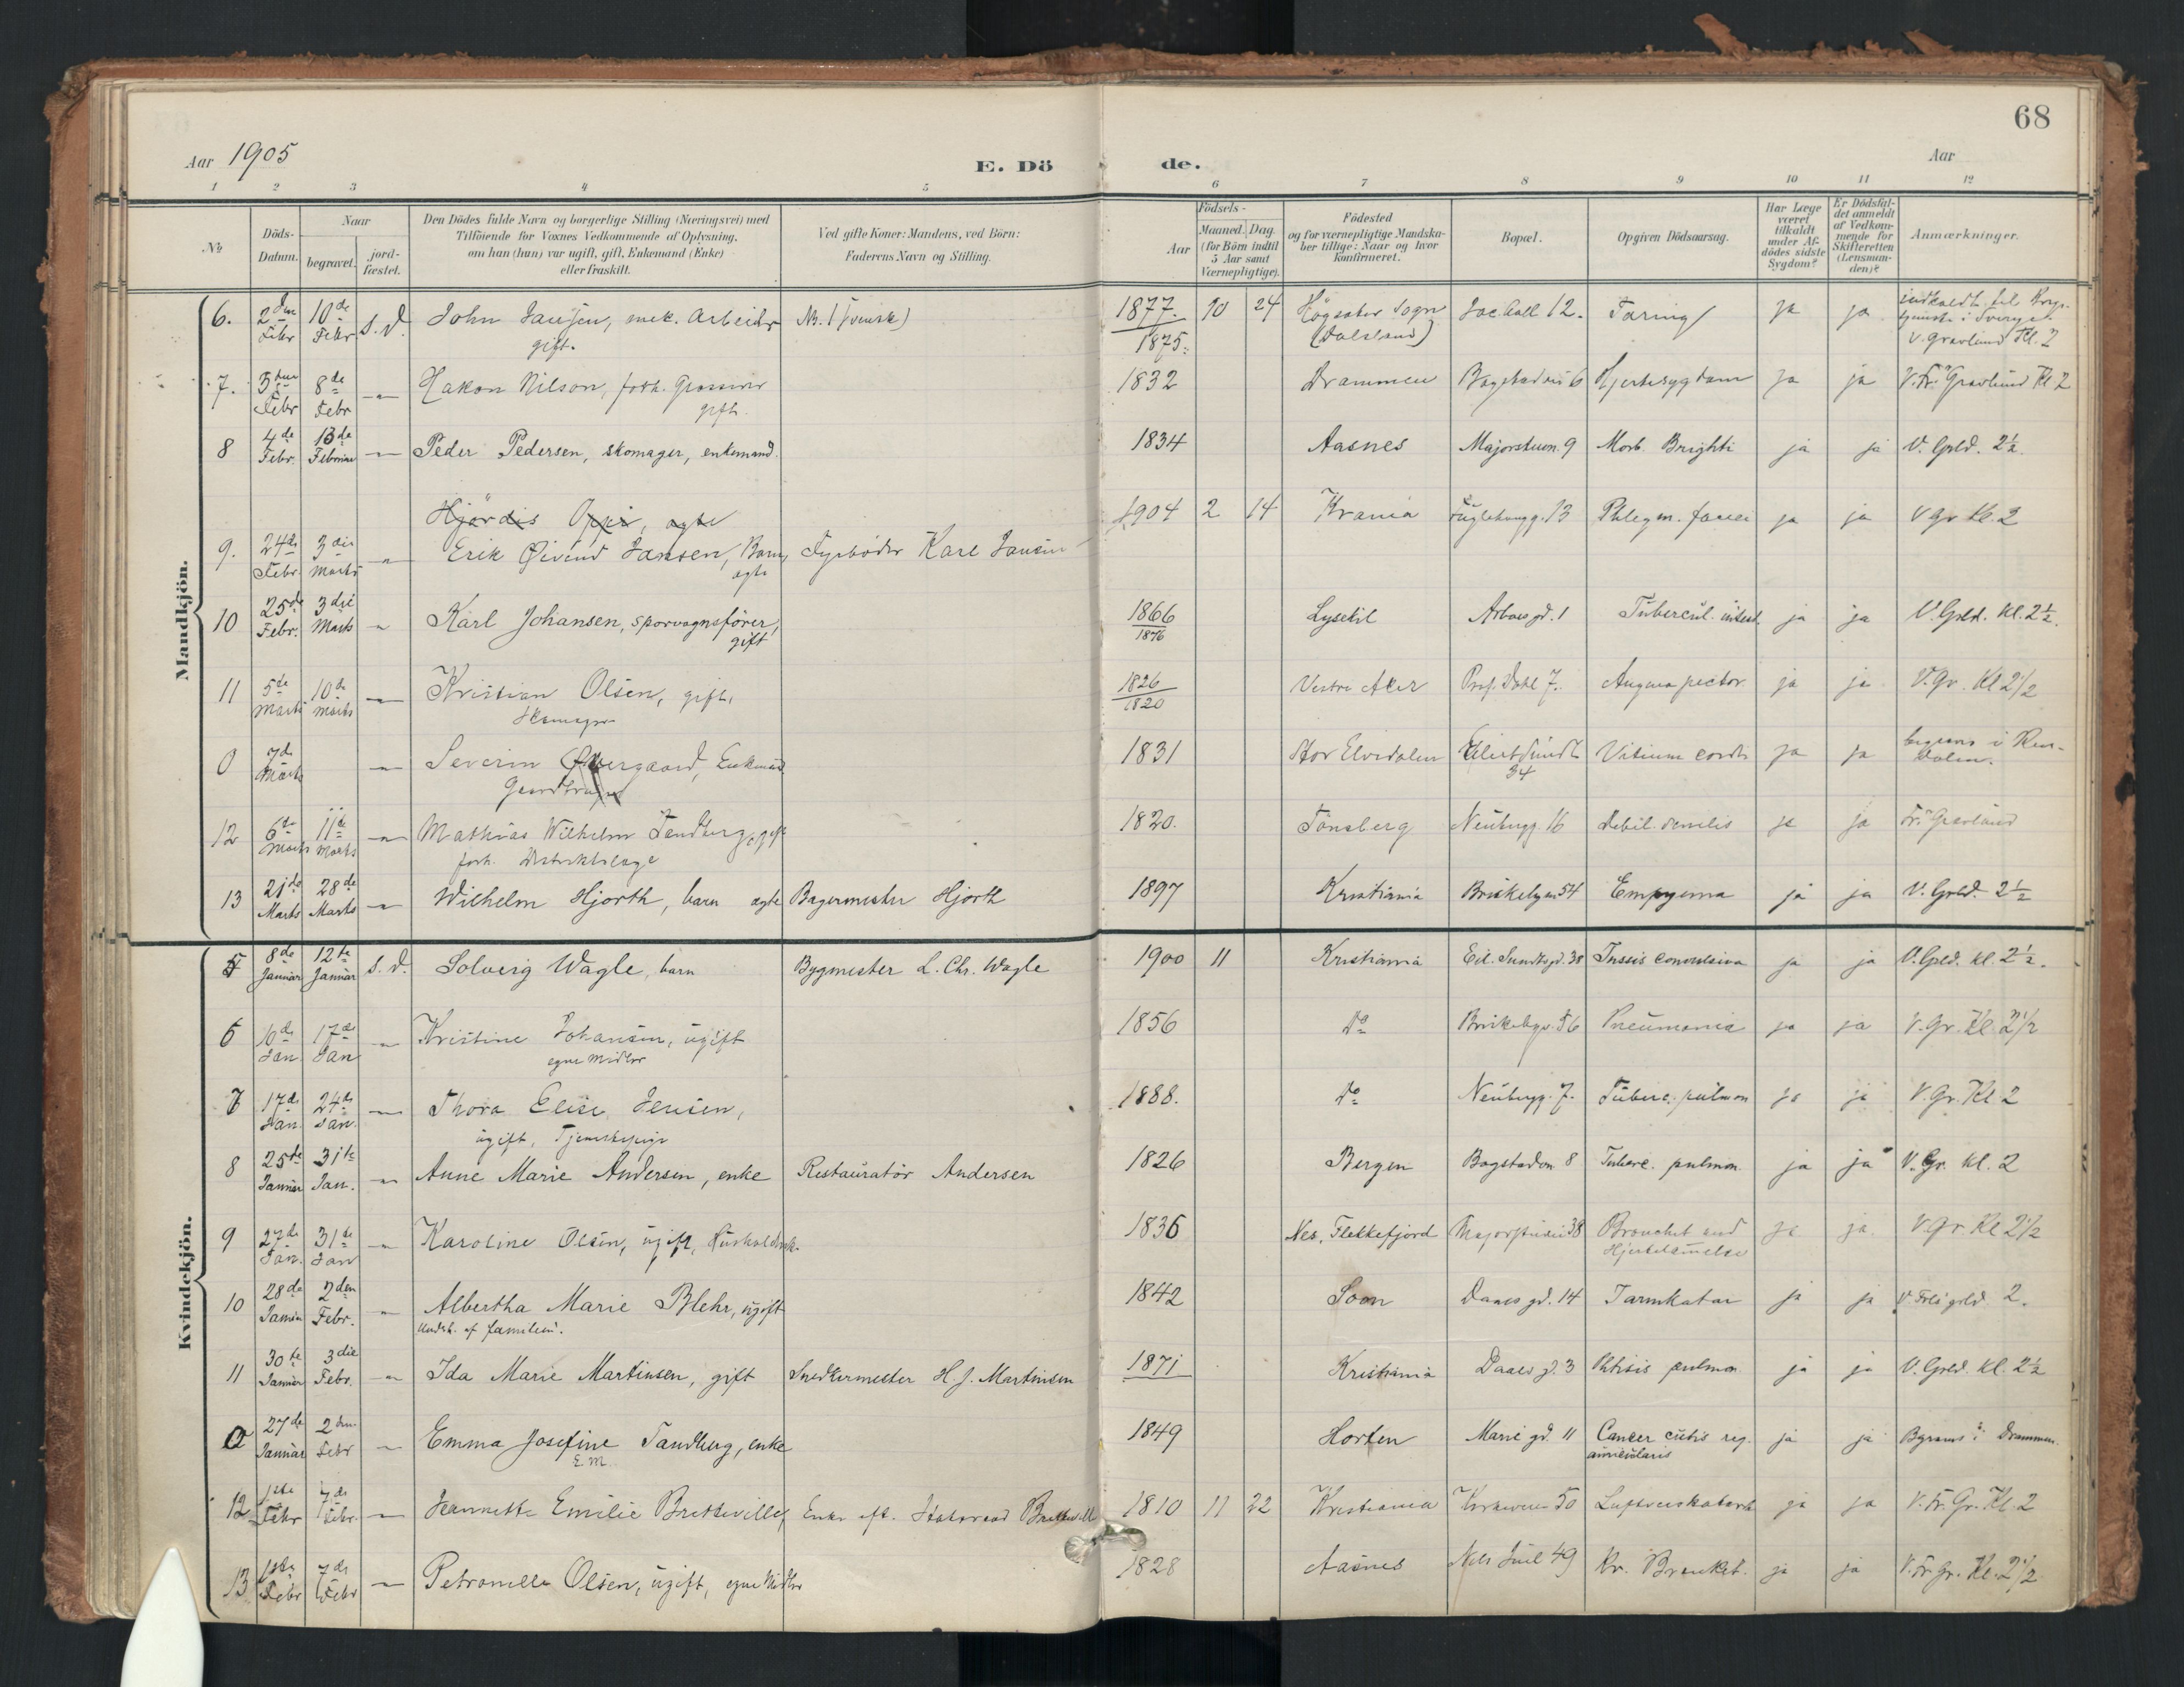 68
Aar 1905 E. Dö de. Aar
1 2 3 4 5 6 7 8 9 10 11 12
No. Döds-Datum. Naar begravet. jord-fæstet. Den Dödes fulde Navn og borgerlige Stilling (Næringsvei) med Tilföiende for Voxnes Vedkommende af Oplysning, om han (hun) var ugift, gift, Enkemand (Enke) eller fraskilt. Ved gifte Koner: Mandens, ved Börn: Faderens Navn og Stilling. Födsels- Aar Maaned. Dag. (for Börn indtil 5 Aar samt Værnepligtige). Födested og for værnepligtige Mandskaber tillige: Naar og hvor konfirmeret. Bopæl. Opgiven Dödsaarsag. Har Læge været tilkaldt under Afdödes sidste Sygdom? Er Dödsfaldet anmeldt af Vedkommende for Skifteretten (Lensmanden)? Anmærkninger.
Mandkjön.
6. 2den Febr 10de Febr S.D. John Jansen, mek. Arbeider gift. Nr. 1 (svensk) 1877 1875 10 24 Högsäter Sogn (Dalsland) Jac. Aall 12. Taring ja ja indkaldt til Krigstjeneste i Sverige. V. gravlund Kl. 2
7. 3die Febr 8de Febr Hakon Nilson, forh. Grosserer gift. 1832 Drammen Bogstadvei 6 Hjertesygdom ja ja V. Fr. Gravlund Kl 2
8 4de Febr. 13de Februar Peder Pedersen, skomager, enkemand. 1834 Aasnes Majorstuen. 9 Morb. Brighti ja ja V. Grld. 2½.
Hjördis Oppi, ægte
9. 24de Febr. 3die Marts Erik Øivind Jansen, Barn, ægte Fyrbøder Karl Jansen 1904 2 14 Krania Fuglehaugg. 13 Phlegm. faciei ja ja V gr Kl. 2
10 25de Febr. 3die Marts Karl Johansen, sporvognsfører, gift 1866 1876 Lysekil Arboes gd. 1 Tubercul. intest. ja ja V. Grld. Kl. 2½.
11 5de Marts 10de Marts Kristian Olsen, gift, Skomager 1826 1820 Vestre Aker Prof. Dahl 7. Angina pector. ja ja V. Gr. Kl 2½
0 7de Marts Severin Øvergaard, Enkemand Gaardbruger 1831 Stor Elvedalen Eilert Sundt 34 Vitium cordis ja ja begraves i Rendalen.
12 6te Marts 11te Marts Mathias Wilhelm Tandberg, gift forh. Distriktslæge 1820. Tönsberg Neubergg. 16 Debil. senilis ja ja Fr. Gravlund
13 21de Marts 28de Marts Wilhelm Hjorth, barn ægte Bagermester Hjorth 1897 Kristiania Briskebyvn 54 Empyema ja ja V. Grld. 2½
Kvindekjön.
5 8de Januar 12te Januar S.D. Solveig Wagle, barn Bygmester L. Chr. Wagle 1900 11 Kristiania Eil. Sundtsgd. 38 Tussis convulsiva ja ja V. Grld. kl. 2½.
6 10de Jan 17de Jan Kristine Johansen, ugift egne Midler 1856 Do Briskebyv. 56 Pneumonia ja ja V. Gr. Kl. 2½
7 17de Jan 24de Jan. Thora Elise Jensen, ugift, Tjenestepige 1888. Do Neubergg. 7. Tuberc. pulmon ja ja V. Gr. Kl. 2
8 25de Januar 31te Jan. Anne Marie Andersen, enke Restauratör Andersen 1826 Bergen Bogstadvn 8 Tuberc. pulmon ja ja V. Gr. kl. 2
9 27de Jan. 31te Jan Karoline Olsen, ugift, Husholdersk. 1836 Nes, Flekkefjord Majorstuvei 38 Bronchit and Hjertelammelse ja ja V. gr. Kl 2½
10 28de Januar 2den Febr. Albertha Marie Blehr, ugift Underh. af familien. 1842 Soon Daaes gd. 14 Tarmkatar ja ja V. Frels grld. 2.
11 30te Januar 3die Febr. Ida Marie Martinsen, gift Snedkermester H. J. Martinsen 1871 Kristiania Daaes gd. 3 Phtisis pulmon. ja ja V. Grld. Kl. 2½
0 27de Januar 2den Febr Emma Josefine Tandberg, enke E.M. 1849 Horten Marie gd. 11 Cancer cutis reg. auricularis ja ja Bgraves i Drammen.
12 1ste Febr 7de Febr. Jeannette Emilie Bretteville, Enke eft. Statsraad Bretteville 1810 11 22 Kristiania Kirkeveien 50 Luftveiskatarrh ja ja V. Fr. Gr. Kl. 2
13 1ste Febr 7de Febr Petronelle Olsen, ugift, egne Midler 1828 Aasnes Nils Juel 49 Kr. Bronkit. ja ja V. Fr. gr. Kl. 2½